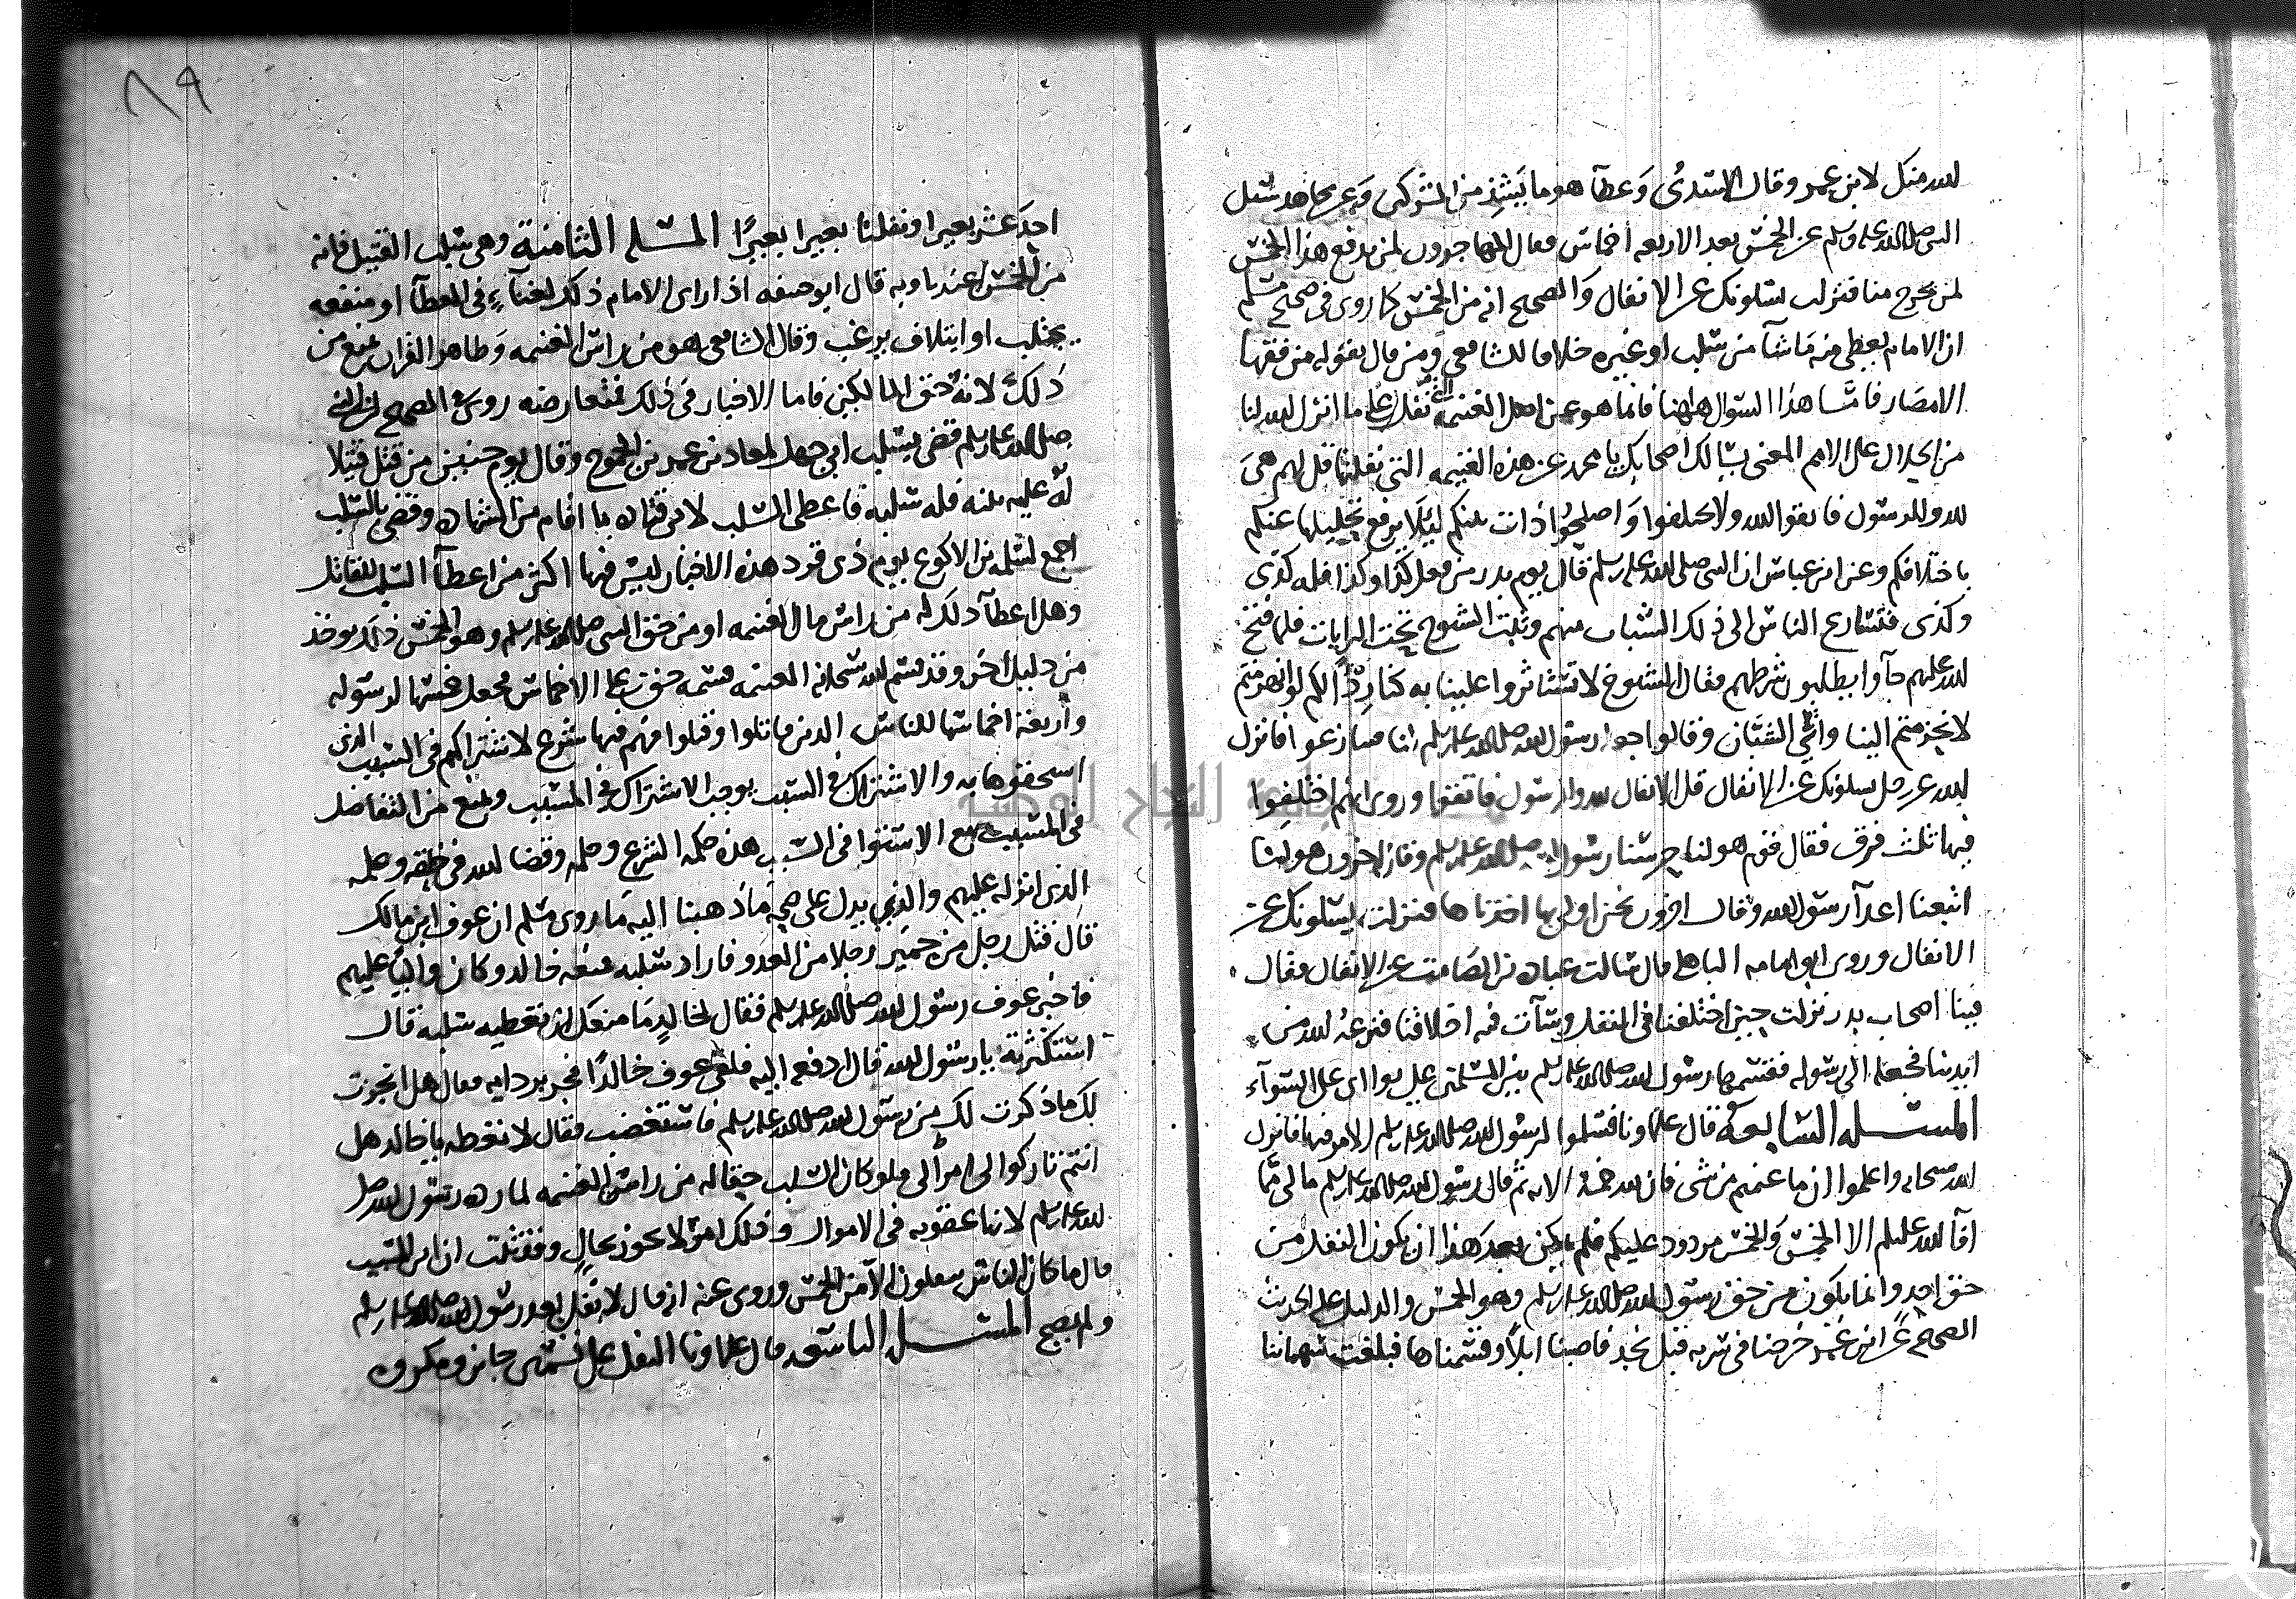 لله منكل لابن عمر وقال السدى وعطآ هو ما يشذ من المشركين وعن مجاهد سئل
النبى صلى الله عليه وسلم عن الخمس بعد الاربعه اخماس فقال المهاجرون لمن يدفع هذا الخمس
لمن يخرج منا فنزلت يسئلونك عن الانفال والصحيح انه من الخمس كما روى فى صحيح مسلم
ان الامام يعطى منه ما شآ من سلب او غيره خلافا للشافعى ومن قال بقوله من فقهآ
الامصار فاما هذا السوال هاهنا فانما هو عن اصل الغنيمة التى نفلوا على ما انزل الله لنا
من الحلال على الامم المعنى يسالك اصحابك يا محمد عن هذه الغنيمه التى نفلتها قل لهم هى
لله وللرسول فاتقوا الله ولا تختلفوا واصلحوا ذات بينكم ليلا يرفع تحليلها عنكم
باختلافكم وعن ابن عباس ان النبى صلى الله عليه وسلم قال يوم بدر من فعل كذا وكذا فله كذى
وكذى فتسارع الناس الى ذلك الشباب منهم وثبت الشيوخ تحت الرايات فلما فتح
الله عليهم جآوا يطلبون شرطهم فقال الشيوخ لا تستاثروا علينا به كنا ردءا لكم لو انهزمتم
لانحزمتم الينا وابى الفتيان وقالوا جعله رسول الله صلى الله عليه وسلم لنا فتنازعوا فانزل
الله عز وجل يسلونك عن الانفال قل الانفال لله والرسول فاتقوا وروى انهم اختلفوا
فيها ثلث فرق فقال قوم هو لنا حرسنا رسول الله صلى الله عليه وسلم وقال اخرون هو لنا
اتبعنا اعدآ رسول الله وقالت اخرون نحن اولى بها اخذناها فنزلت يسئلونك عن
الانفال وروى ابو امامه الباهلى قال سالت عباده بن الصامت عن الانفال فقال
فينا اصحاب بدر نزلت حين اختلفنا فى النفل وسآت فيه اخلاقنا فنزعه الله من
ايدينا فجعله الى رسوله فقسمها رسول الله صلى الله عليه وسلم بين المسلمين على بوا اى على السوآء
المسـله السابعة قال علماونا فسلموا لرسول الله صلى الله عليه وسلم الامر فيها فانزل
الله سبحانه واعلموا ان ما غنمتم من شى فان لله خمسه الايه ثم قال رسول الله صلى الله عليه وسلم ما لى مما
افآ الله عليكم الا الخمس والخمس مردود عليكم فلم يكن بعد هذا ان يكون النفل من
حق احد وانما يكون من حق رسول الله صلى الله عليه وسلم وهو الخمس والدليل على الحديث
الصحيح عن ابن عمر خرجنا فى سريه قبل نجد فاصبنا ابلا وقسمناها فبلغت سهماننا
٨٩
احد عشر بعيرا ونفلنا بعيرا بعيرا المسـله الثامنة وهى سلب القتيل فانه
من الخمس عندنا وبه قال ابو حنيفه اذا راى الامام ذلك لغنآء فى المعطآ او منفعه
يجتلب او ايتلاف يرغب وقال الشافعى هو من راس الغنيمه وظاهر القران يمنع من
ذلك لانه حق المالكين فاما الاخبار فى ذلك فمتعارضه روى فى الصحيح ان النبى
صلى الله عليه وسلم قضى بسلب ابى جهل لمعاد بن عمرو بن الجموح وقال يوم حنين من قتل قتيلا
له عليه بينه فله سلبه فاعطى السلب لابى قتاده بما اقام من الشهاده وقضى بالسلب
اجمع لسلمه بن الاكوع يوم ذى قرد هذه الاخبار ليس فيها اكثر من اعطآ السلب للقاتل
وهل اعطآ ذلك له من راس مال الغنيمه او من حق النبى صلى الله عليه وسلم وهو الخمس ذلك يوخذ
من دليل اخر وقد قسم الله سبحانه الغنيمه قسمه حق على الاخماس فجعل خمسها لرسوله
واربعة اخماسها للناس الدين قاتلوا وقتلوا فهم فيها شرع لاشتراكهم فى السبب الذى
استحقوها به والاشتراك فى السبب يوجب الاشتراك فى المسبب ويمنع من التفاضل
فى المسبب مع الاستوا فى السبب هذه حكمه الشرع وحكمه وقضا الله فى خلقه وعلمه
الذى انزله عليهم والذى يدل على صحه ما ذهبنا اليه ما روى مسلم ان عوف ابن مالك
قال قتل رجل من حمير رجلا من العدو فاراد سلبه فمنعه خالد وكان واليا عليهم
فاخبر عوف رسول الله صلى الله عليه وسلم فقال لخالد ما منعك ان تعطيه سلبه قال
استكثرته يا رسول الله قال ادفعه اليه فلقى عوف خالدا فجر بردايه فقال هل انجزت
لك ما ذكرت لك من رسول الله صلى الله عليه وسلم فاستغضب فقال لا تعطه يا خالد هل
انتم تاركوا لى امرآلى فلو كان السلب حقا له من راس الغنيمه لما رده رسول الله صلى
الله عليه وسلم لانها عقوبه فى الاموال وذلك امر لا يجوز بحال وقد ثبت ان ابن المسيب
قال ما كان الناس ينفلون الا من الخمس وروى عنه انه قال لا نفل بعد رسول الله صلى الله عليه وسلم
ولم يصح المسـله التاسعه قال علماونا النفل على قسمين جايز ومكروه
جامعة النجاح الوطنية